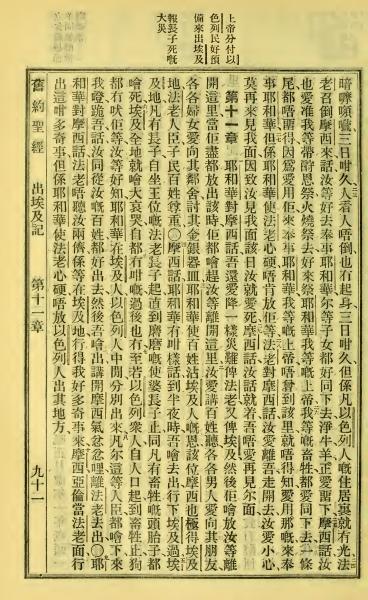 上帝分付以
色列民好預
備來出埃及
報長子死嘅
大災
暗嚟嚫三日咁久人看人唔倒也有起身三日咁久但係凡以色列人嘅住居裏就有光法
老召倒摩西來話汝等好去奉事耶和華尔等子女都好同下去淨牛羊正愛留下摩西話汝
也愛准我等帶祭火燒祭去好來祭耶和華我等嘅上帝我等嘅畜牲都愛同下去一條
尾都唔留得因爲愛用佢來奉事耶和華我等嘅上帝唔曾到該里就唔得知愛用那嘅來奉
事耶和華但係耶和華使法老心硬唔肯放佢等法老對摩西話汝愛離吾走開去汝愛小心
莫再來見我面因致汝見我面該日汝就愛死摩西話汝話就着吾唔愛再見尔面
第十一章 耶和華對摩西話吾還愛降一樣災難俾法老又俾埃及然後佢噲放汝等離
開這里當佢盡都放出該時佢都噲趕汝等離開這里汝愛講百姓聽各各男人愛向其朋友
各各婦女愛向其鄰舍討其金銀器皿耶和華使百姓沾埃及人嘅恩該位摩西也極得埃及
地法老人臣子民百姓所重〇摩西話耶和華有咁樣話到半夜時吾噲去出行下埃及過埃
及地凡有長子自坐王位嘅法老長子起直到磨磨嘅使婆長子止同凡有畜牲嘅頭胎子都
噲死埃及全地就噲大哀哭自都有咁嘅過後也有至若以色列衆人自人口起到畜牲止狗
都有吠佢等汝等好知耶和華在埃及人以色列人中間分別出來凡尔這等人臣都噲下來
我嘅跪吾話汝同從汝嘅百姓都好出去然後吾噲出講開摩西氣忿忿哩離法老去出〇耶
和華對摩西話法老唔聽汝兩儕係等在埃及地行得我好多奇事來摩西亞倫當法老面行
出這咁多奇事但係耶和華使法老心硬唔放以色列人出其地方
舊約聖經 出埃及記 第十一章 九十一